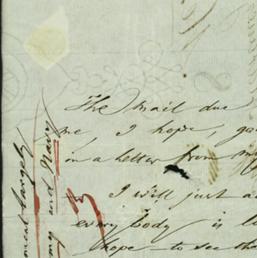 The Mail due
me, I hope, go
in a letter from my
I will just a
every body is l
hope to see th
ment largely
my and Navy